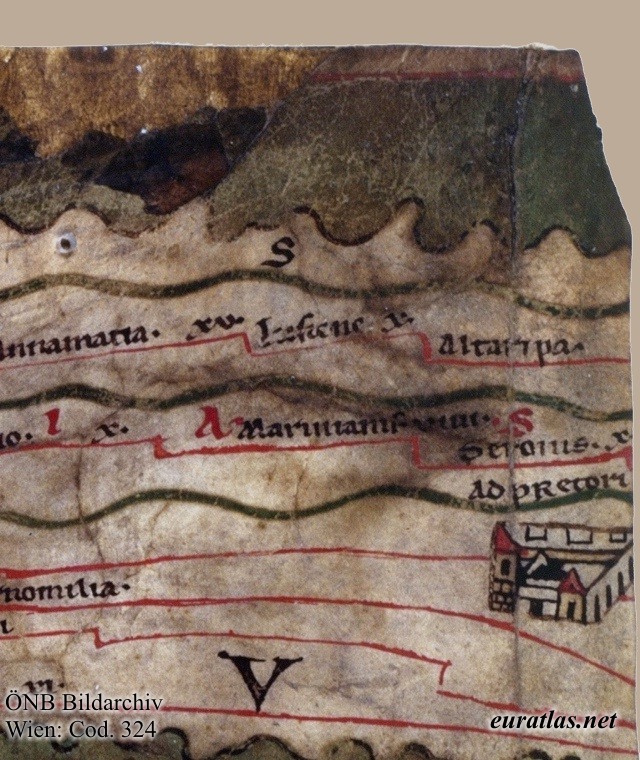 S
annamatia. xv. Lusiene. x. Altaripa.
no. I x. A Marinianis viiii. S
Seronis. x
Ad pretori
nomilia.
V
ÖNB Bildarchiv
Wien: Cod. 324
euratlas.net